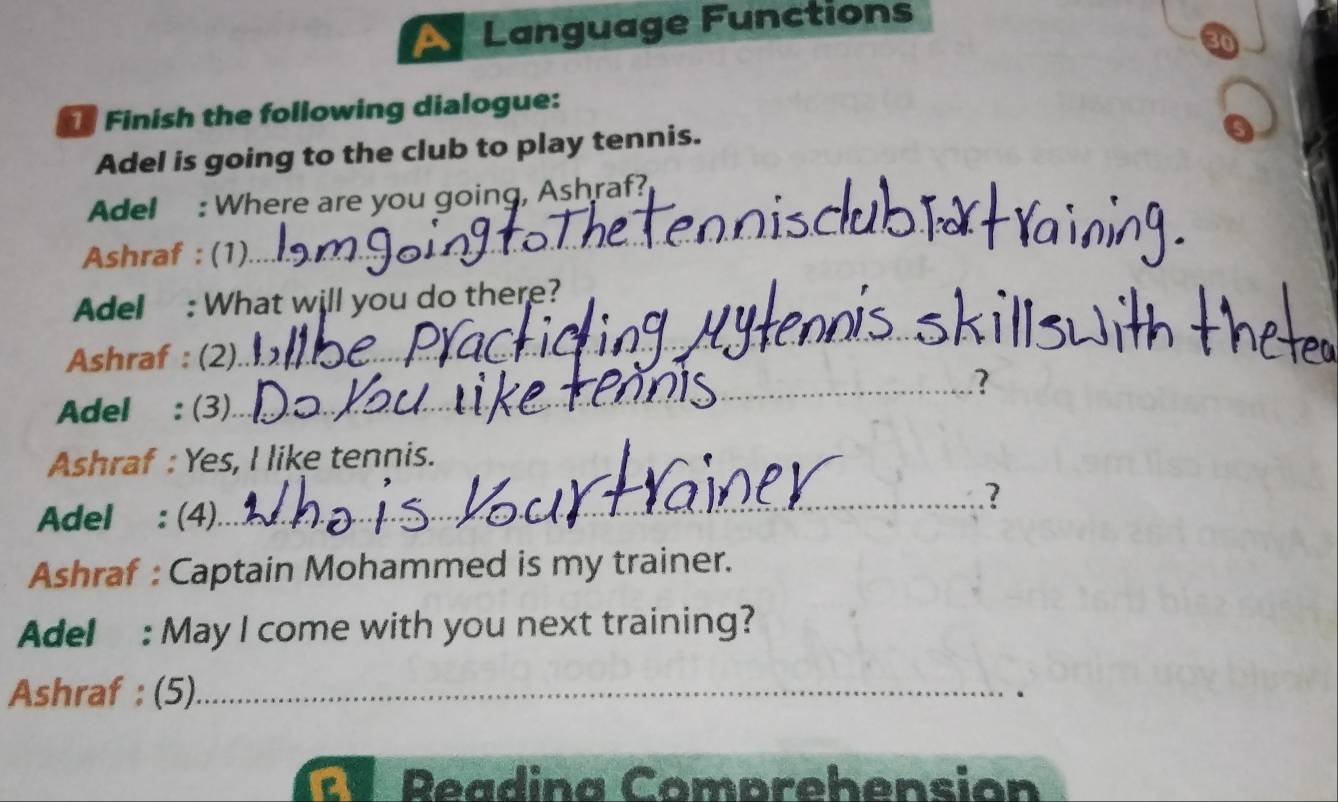 A Language Functions
30
1 Finish the following dialogue:
5
Adel is going to the club to play tennis.
Adel : Where are you going, Ashraf?
Ashraf : (1)....I am going to The tennis club For training.
Adel : What will you do there?
Ashraf : (2)..I'll be practicing My tennis skills with the tea
Adel : (3)...Do You like tennis..............?
Ashraf : Yes, I like tennis.
Adel : (4)...Who is Your trainer..............?
Ashraf : Captain Mohammed is my trainer.
Adel : May I come with you next training?
Ashraf : (5)............................................ .
B Reading Comprehension